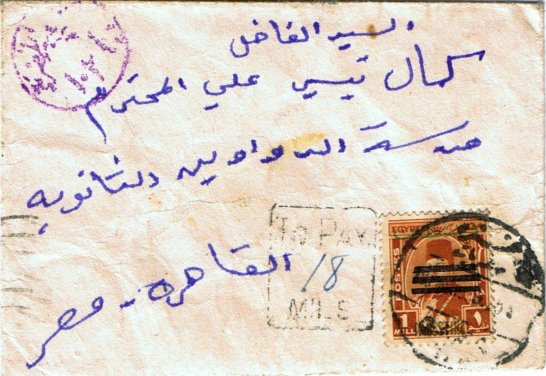 السيد الفاضل
كمال تيسير علي المحترم
مدرسة الدواوين الثانويه
القاهره - مصر
TO PAY
18
MILS
EGYPTE
POSTES
1 MILL ١